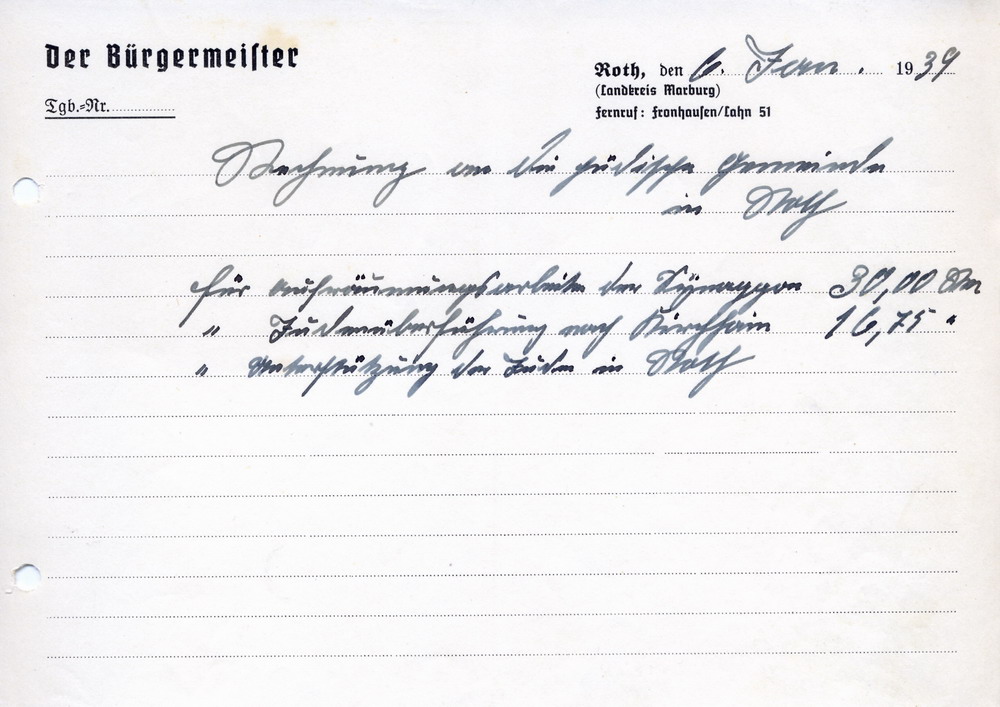 Der Bürgermeister
Roth, den 6. Jan. 1939
(Landkreis Marburg)
Fernruf: Fronhausen/Lahn 51
Tgb.-Nr.
Rechnung an die jüdische Gemeinde
in Roth
für Aufräumungsarbeiten der Synagoge 30,00 Rm
" Judenüberführung nach Kirchhain 16,75 "
" Unterstützung der Juden in Roth